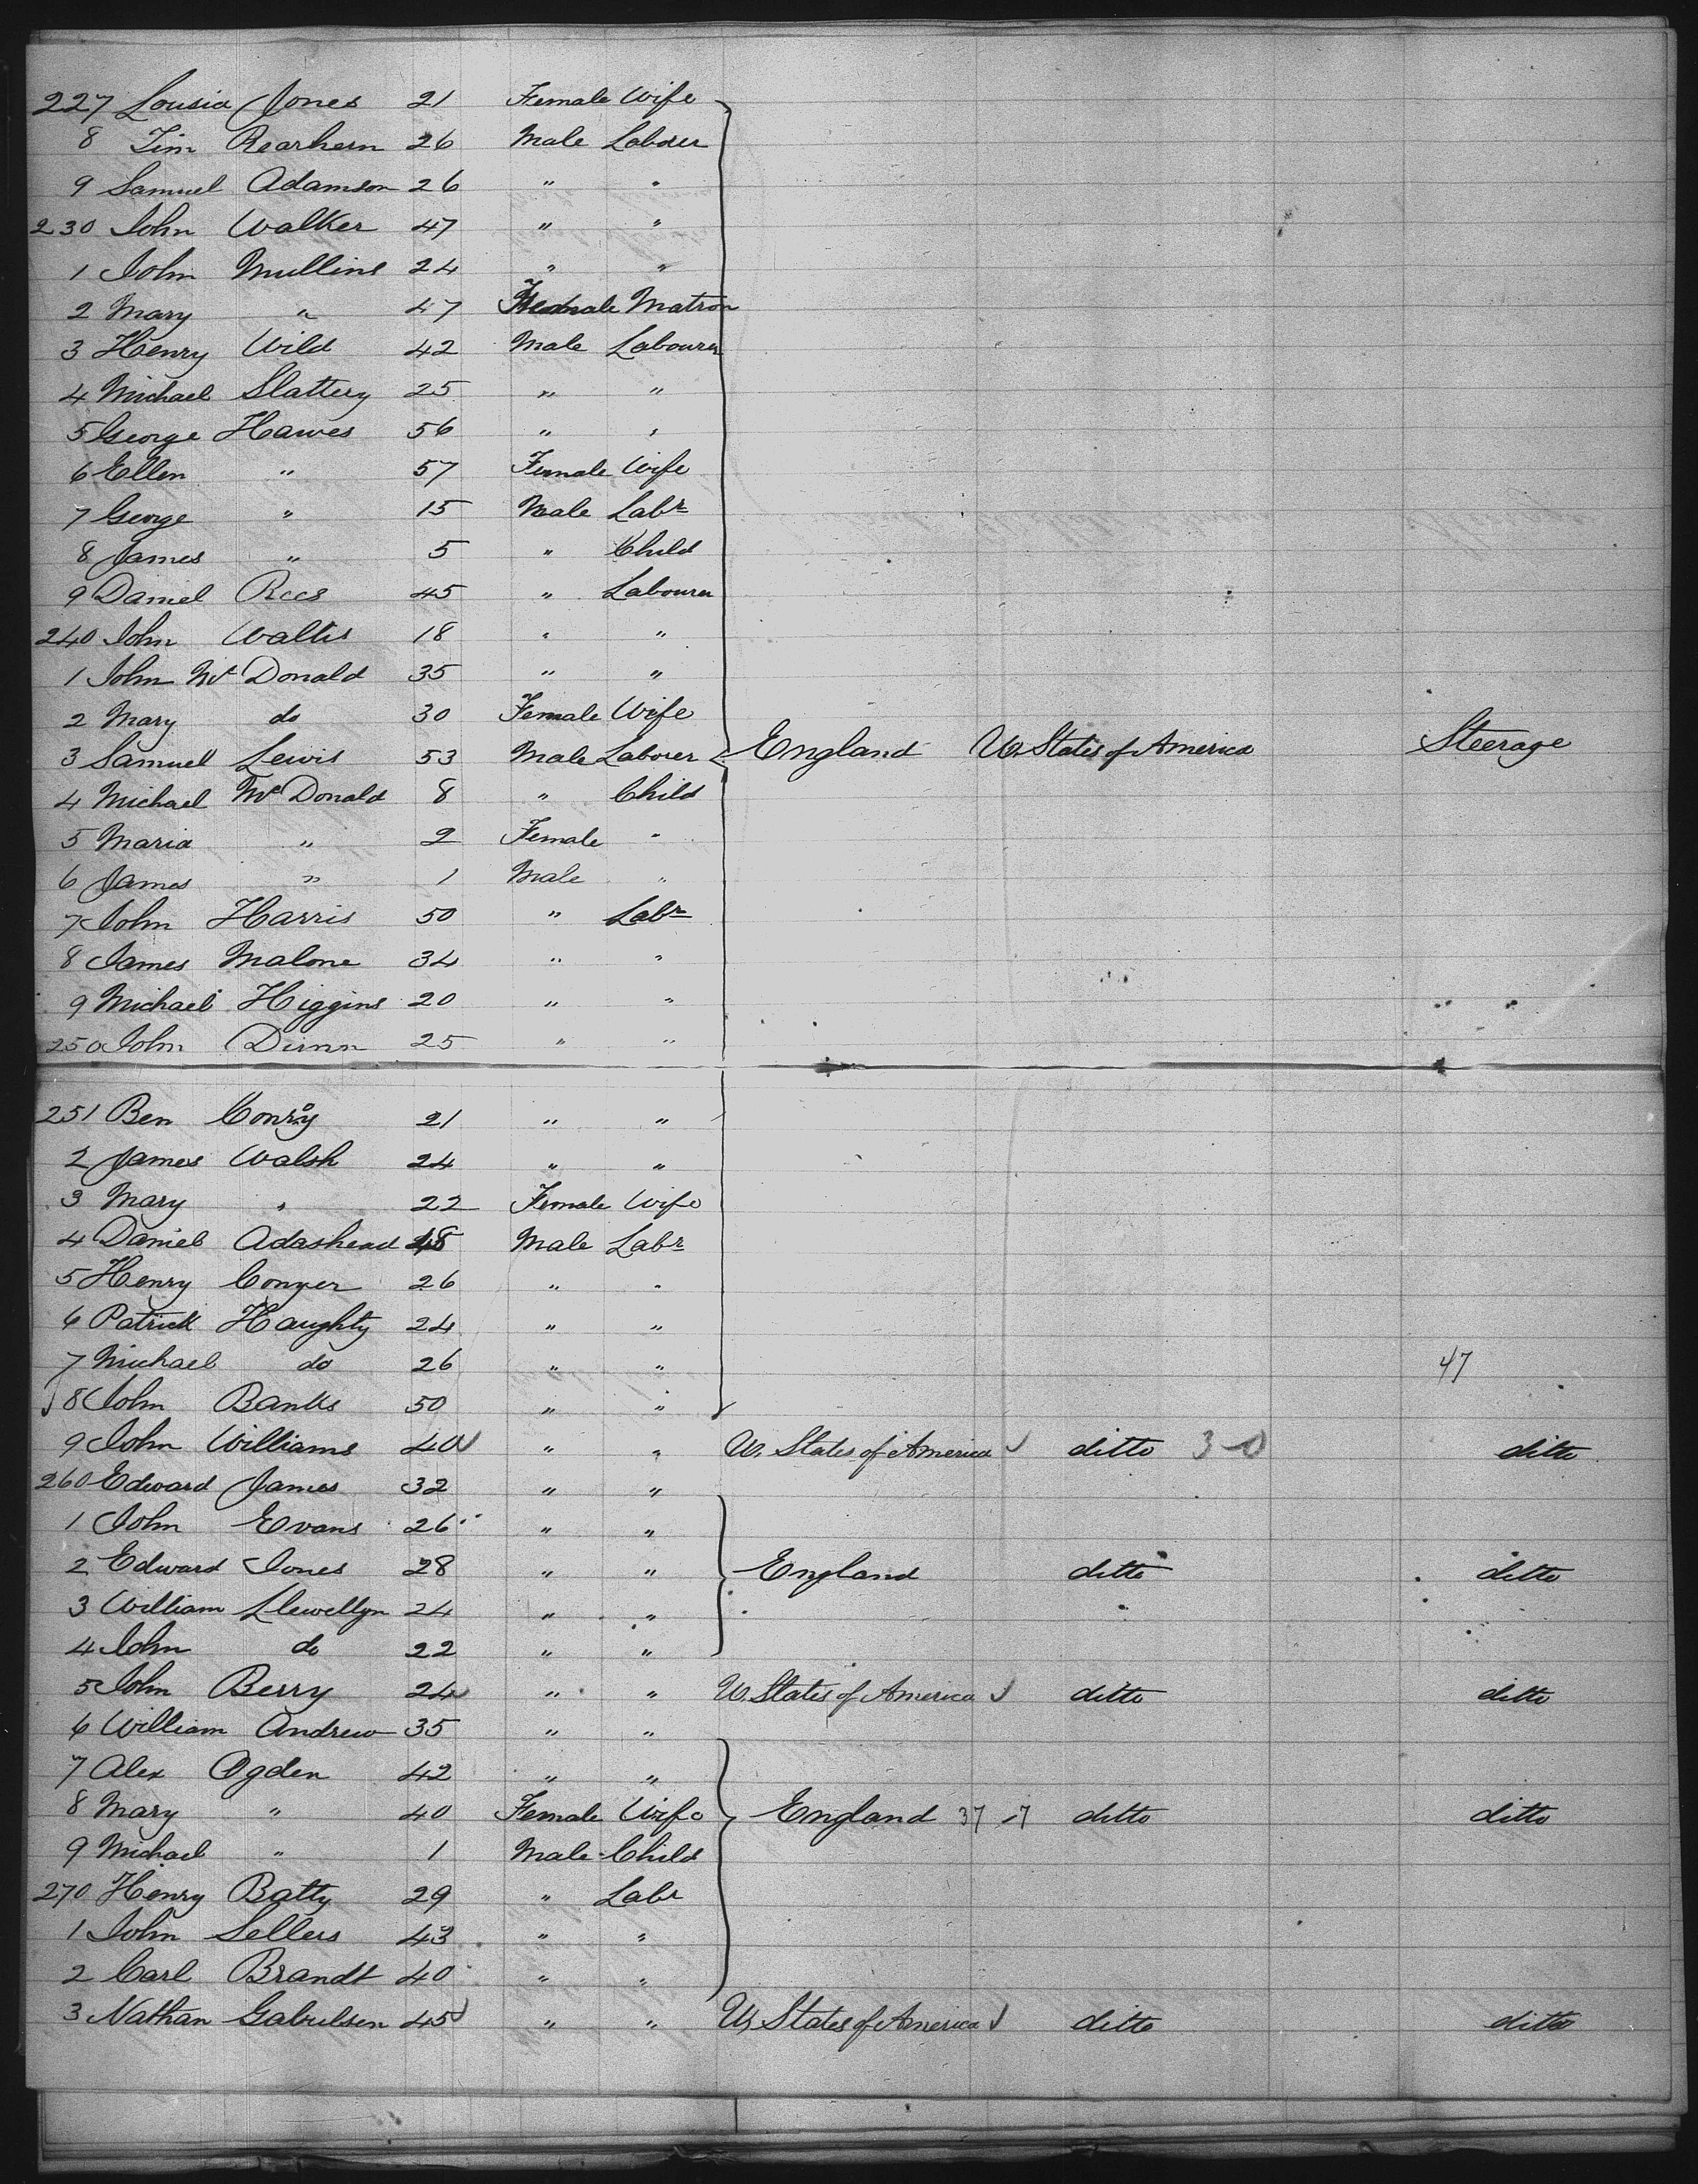 227 Lousia Jones 21 Female Wife
8 Tim Rearhern 26 Male Laborer
9 Samuel Adamson 26 " "
230 John Walker 47 " "
1 John Mullins 24 " "
2 Mary " 47 Female Matron
3 Henry Wild 42 Male Labourer
4 Michael Slattery 25 " "
5 George Hawes 56 " "
6 Ellen " 57 Female Wife
7 George " 15 Male Labr
8 James " 5 " Child
9 Daniel Rees 45 " Labourer
240 John Wallis 18 " "
1 John Mc Donald 35 " "
2 Mary do 30 Female Wife
3 Samuel Lewis 53 Male Laborer England U. States of America Steerage
4 Michael Mc Donald 8 " Child
5 Maria " 2 Female "
6 James " 1 Male "
7 John Harris 50 " Labr
8 James Malone 34 " "
9 Michael Higgins 20 " "
250 John Dirnn 25 " "
251 Ben Conroy 21 " "
2 James Walsh 24 " "
3 Mary " 22 Female Wife
4 Daniel Adashead 48 Male Labr
5 Henry Conyer 26 " "
6 Patrick Haughty 24 " "
7 Michael do 26 " " 47
8 John Banks 50 " "
9 John Williams 40 " " U. States of America ditto 3-0 ditto
260 Edward James 32 " "
1 John Evans 26 " "
2 Edward Jones 28 " " England ditto ditto
3 William Llewellyn 24 " "
4 John do 22 " "
5 John Berry 24 " " U. States of America ditto ditto
6 William Andrew 35 " "
7 Alex Ogden 42 " "
8 Mary " 40 Female Wife England 37 17 ditto ditto
9 Michael " 1 Male Child
270 Henry Batty 29 " Labr
1 John Sellers 43 " "
2 Carl Brandt 40 " "
3 Nathan Gabrilsen 45 " " U. States of America ditto ditto